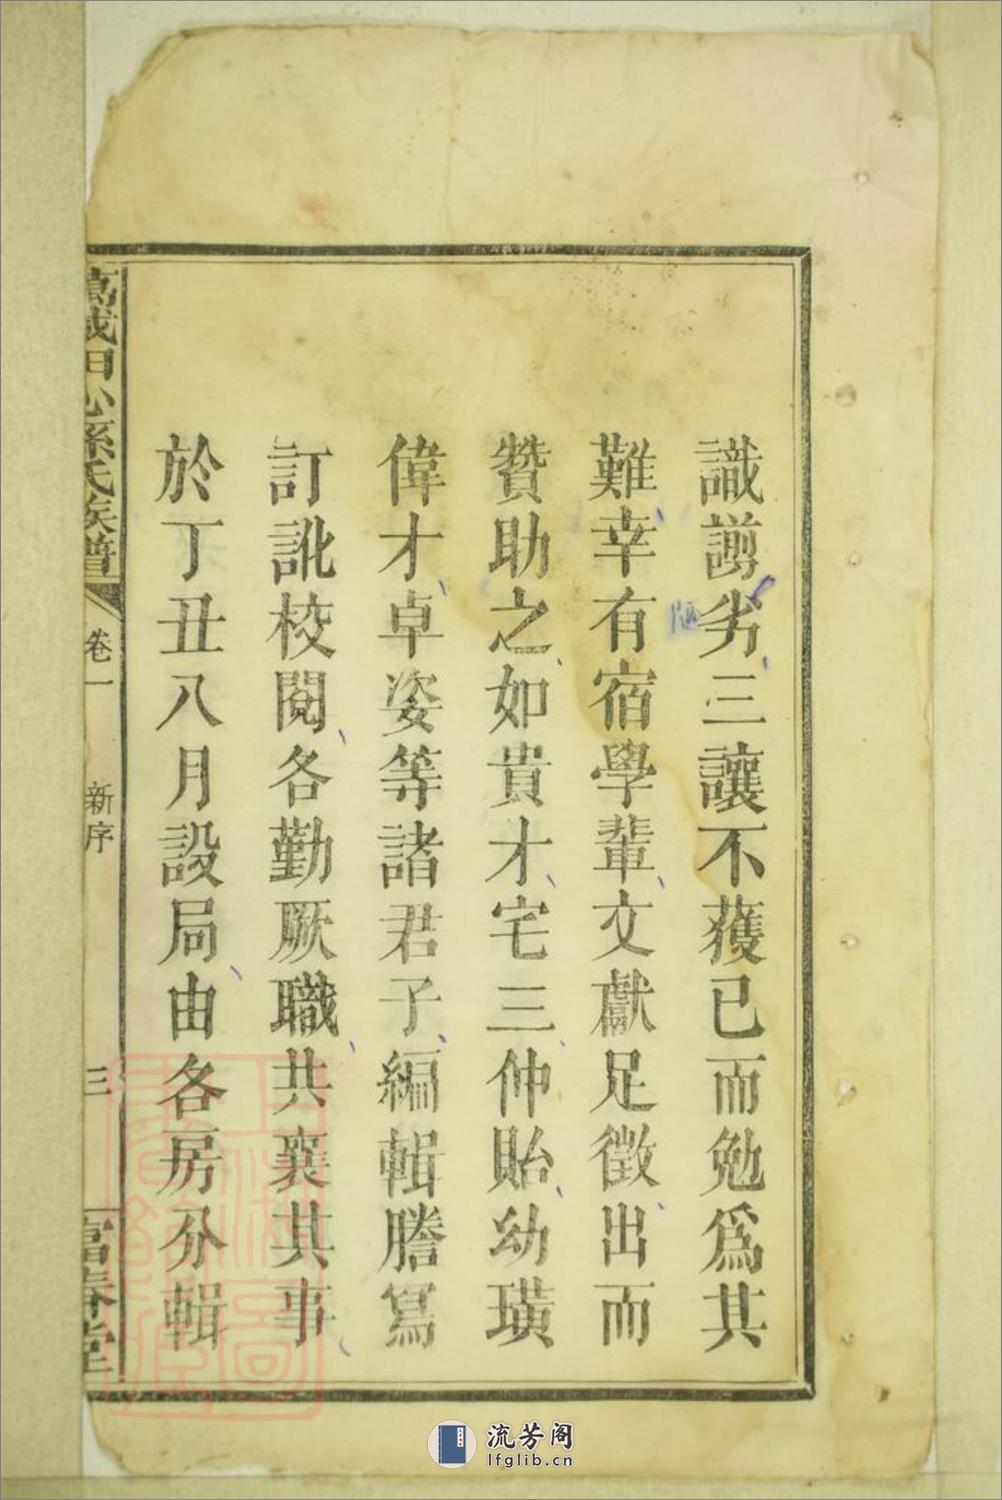 識謭劣三讓不獲已而勉爲其
難幸有宿學輩文獻足徵出而
贊助之如貴才宅三仲貽幼璜
偉才卓姿等諸君子編輯謄寫
訂訛校閱各勤厥職共襄其事
於丁丑八月設局由各房分輯
萬載田心孫氏族譜 卷一 新序 三 富春堂
陋
流芳阁
lfglib.cn